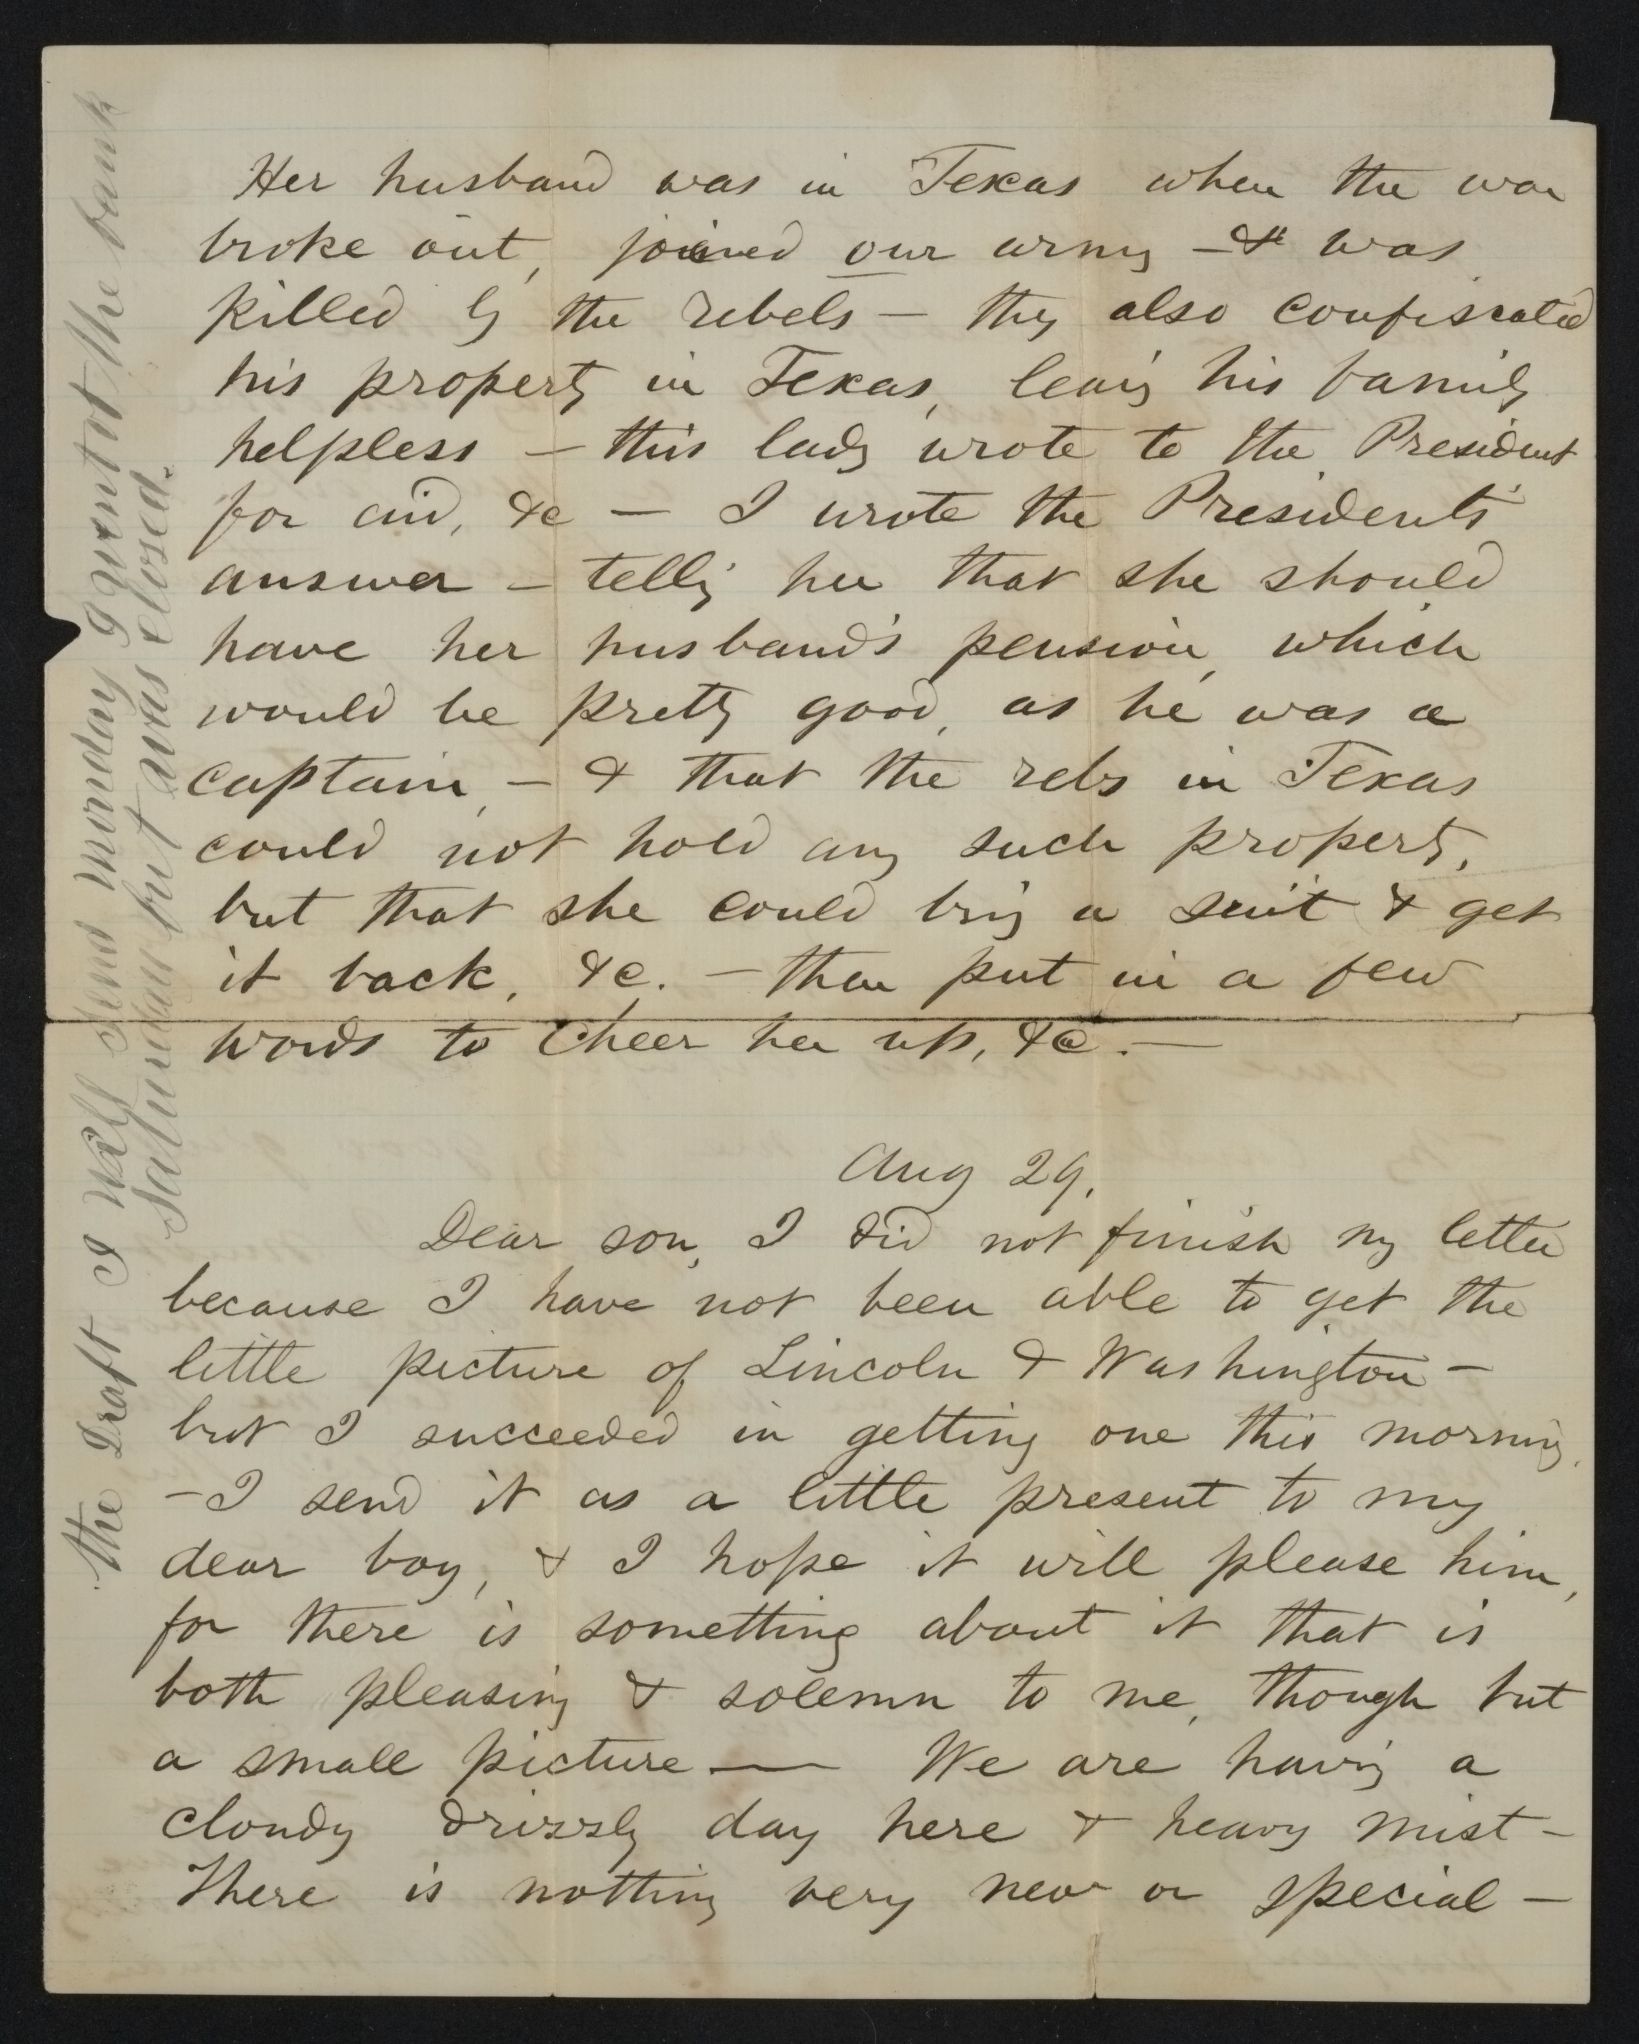 Her husband was in Texas when the war
broke out, joined our army — & was
killed by the rebels — they also confiscated
his property in Texas, leavig his family
helpless — this lady wrote to the President
for aid, &c — I wrote the President's
answer — tellig her that she should
have her husband's pension, which
would be pretty good, as he was a
captain, — & that the rebs in Texas
could not hold any such property,
but that she could brig a suit & get
it back, &c. — then put in a few
words to cheer her up, &c. —
Aug 29.
Dear son, I did not finish my letter
because I have not been able to get the
little picture of Lincoln & Washington —
but I succeeded in getting one this morning.
— I send it as a little present to my
dear boy, & I hope it will please him,
for there is something about it that is
both pleasing & solemn to me, though but
a small picture — We are havig a
cloudy drizzly day here & heavy mist —
There is nothing very new or special —
the Draft I will send monday I went ot the bank
Saturday but was closed.